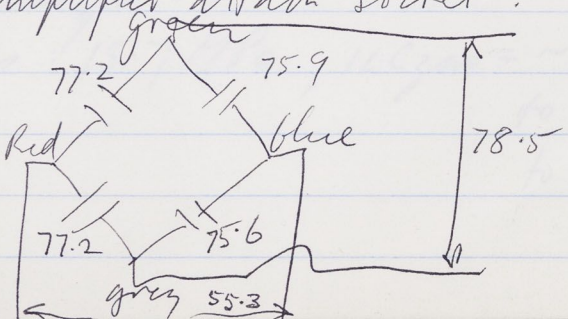 amplifier
socket.
green
77.2 75.9
Red blue 78.5
77.2 75.6
grey 55.3